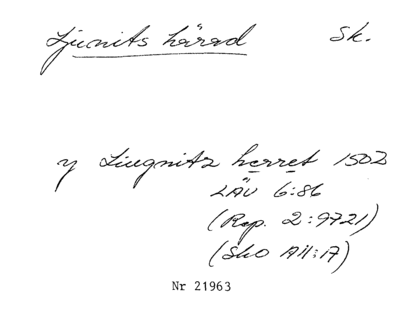 Ljunits härad Sk.
y Liugnitz herret 1502
LÄU 6:86
(Rep. 2:9721)
(SkO AII:17)
Nr 21963